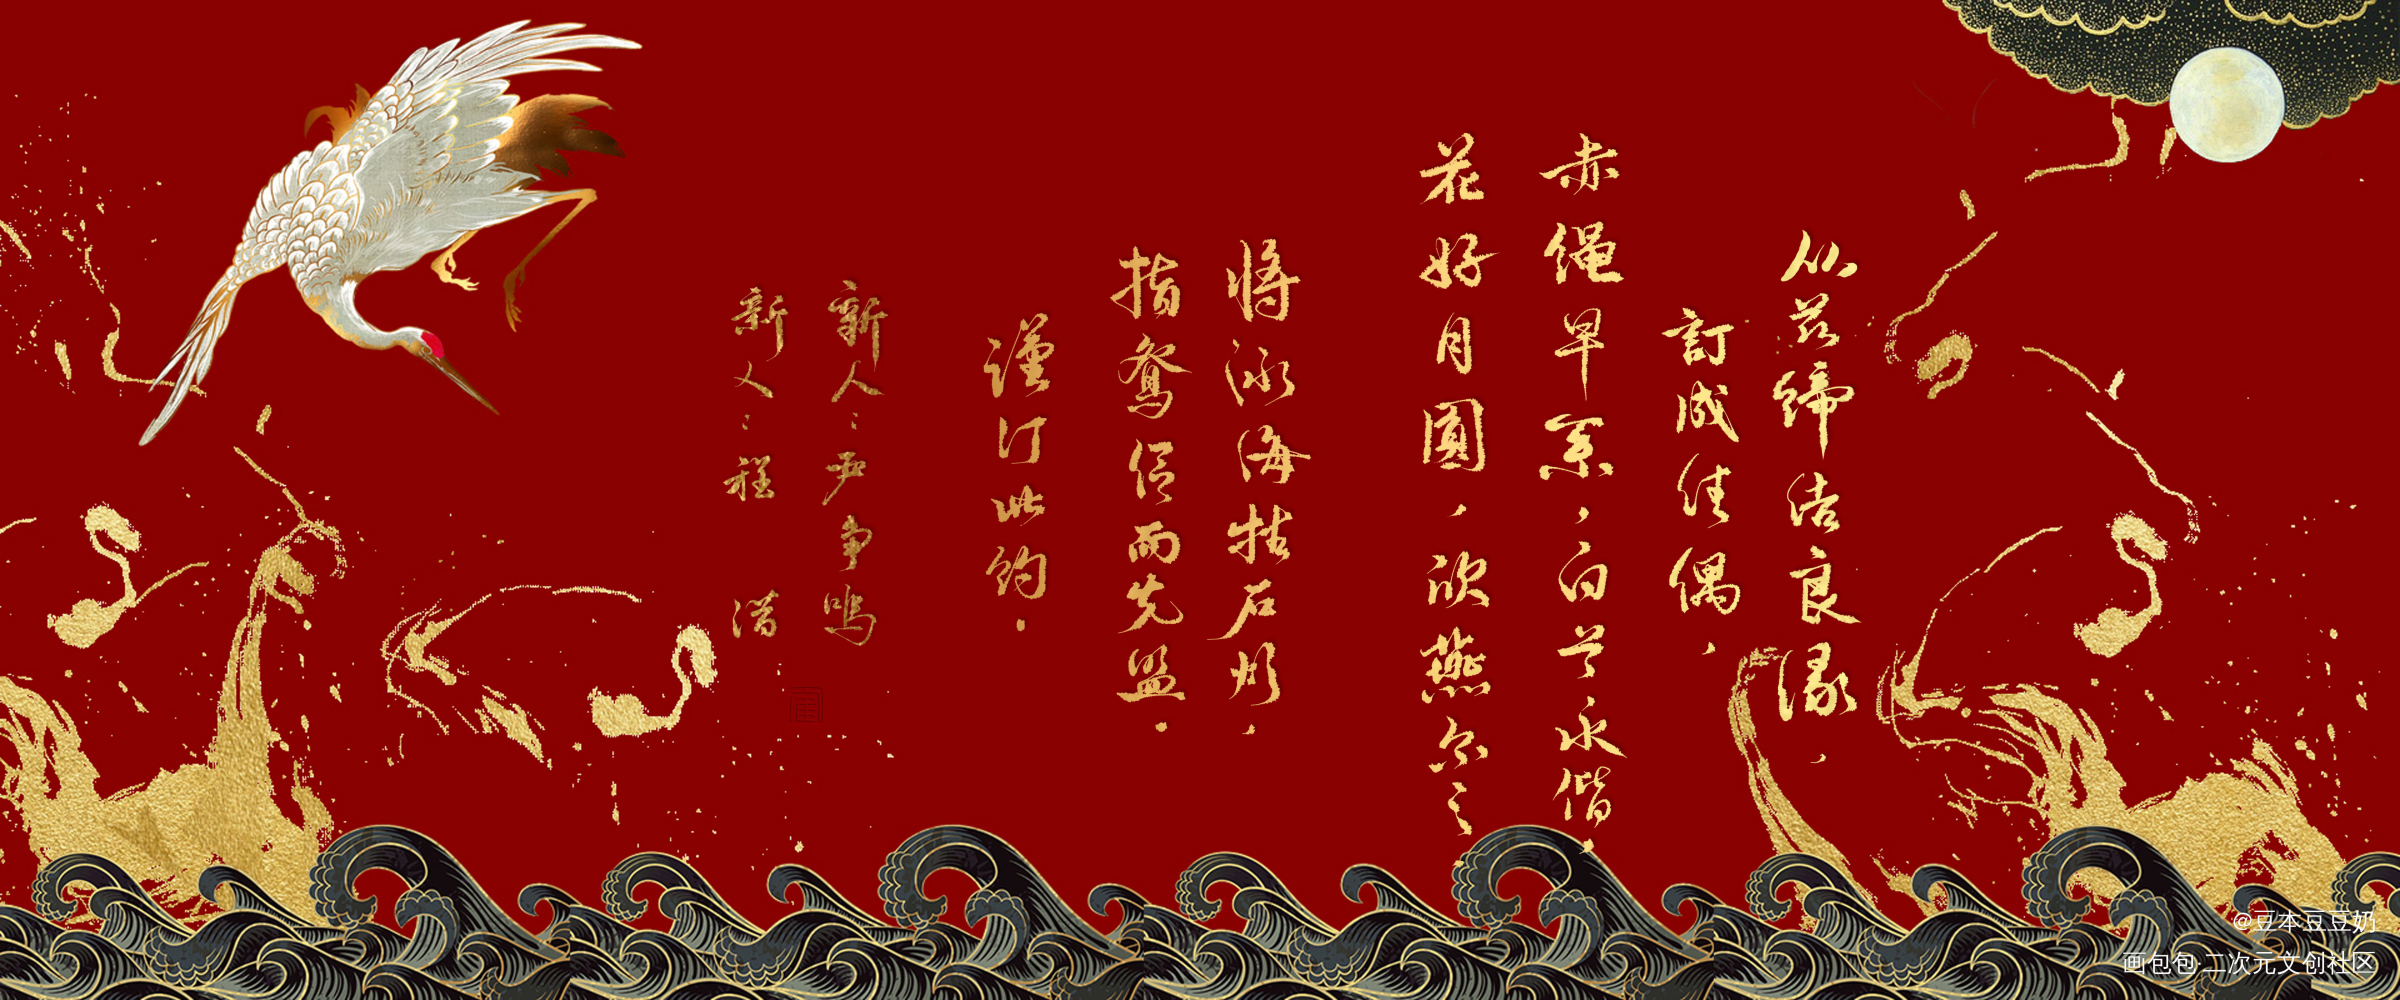 从兹缔结良缘，
訂成佳偶，
赤绳早系，白首永偕，
花好月圓，欣燕尔之，
将泳海枯石烂，
指鸳侣而先盟。
谨订此约。
新人：严争鸣
新人：程潜
@豆本豆豆奶
画包包·二次元文创社区